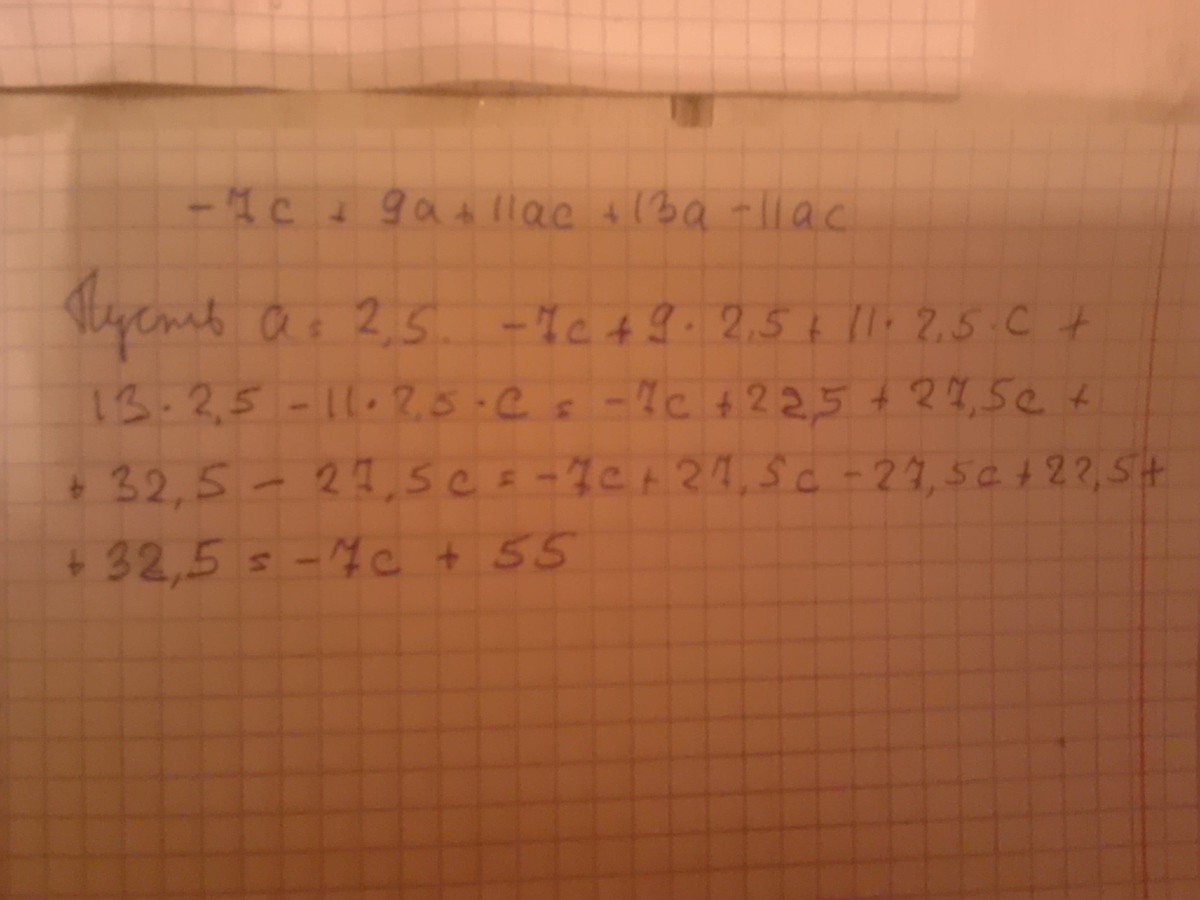 -7c + 9a + 11ac + 13a - 11ac
Пусть a = 2,5. -7c + 9 · 2,5 + 11 · 2,5 · c +
13 · 2,5 - 11 · 2,5 · c = -7c + 22,5 + 27,5c +
+ 32,5 - 27,5c = -7c + 27,5c - 27,5c + 22,5 +
+ 32,5 = -7c + 55